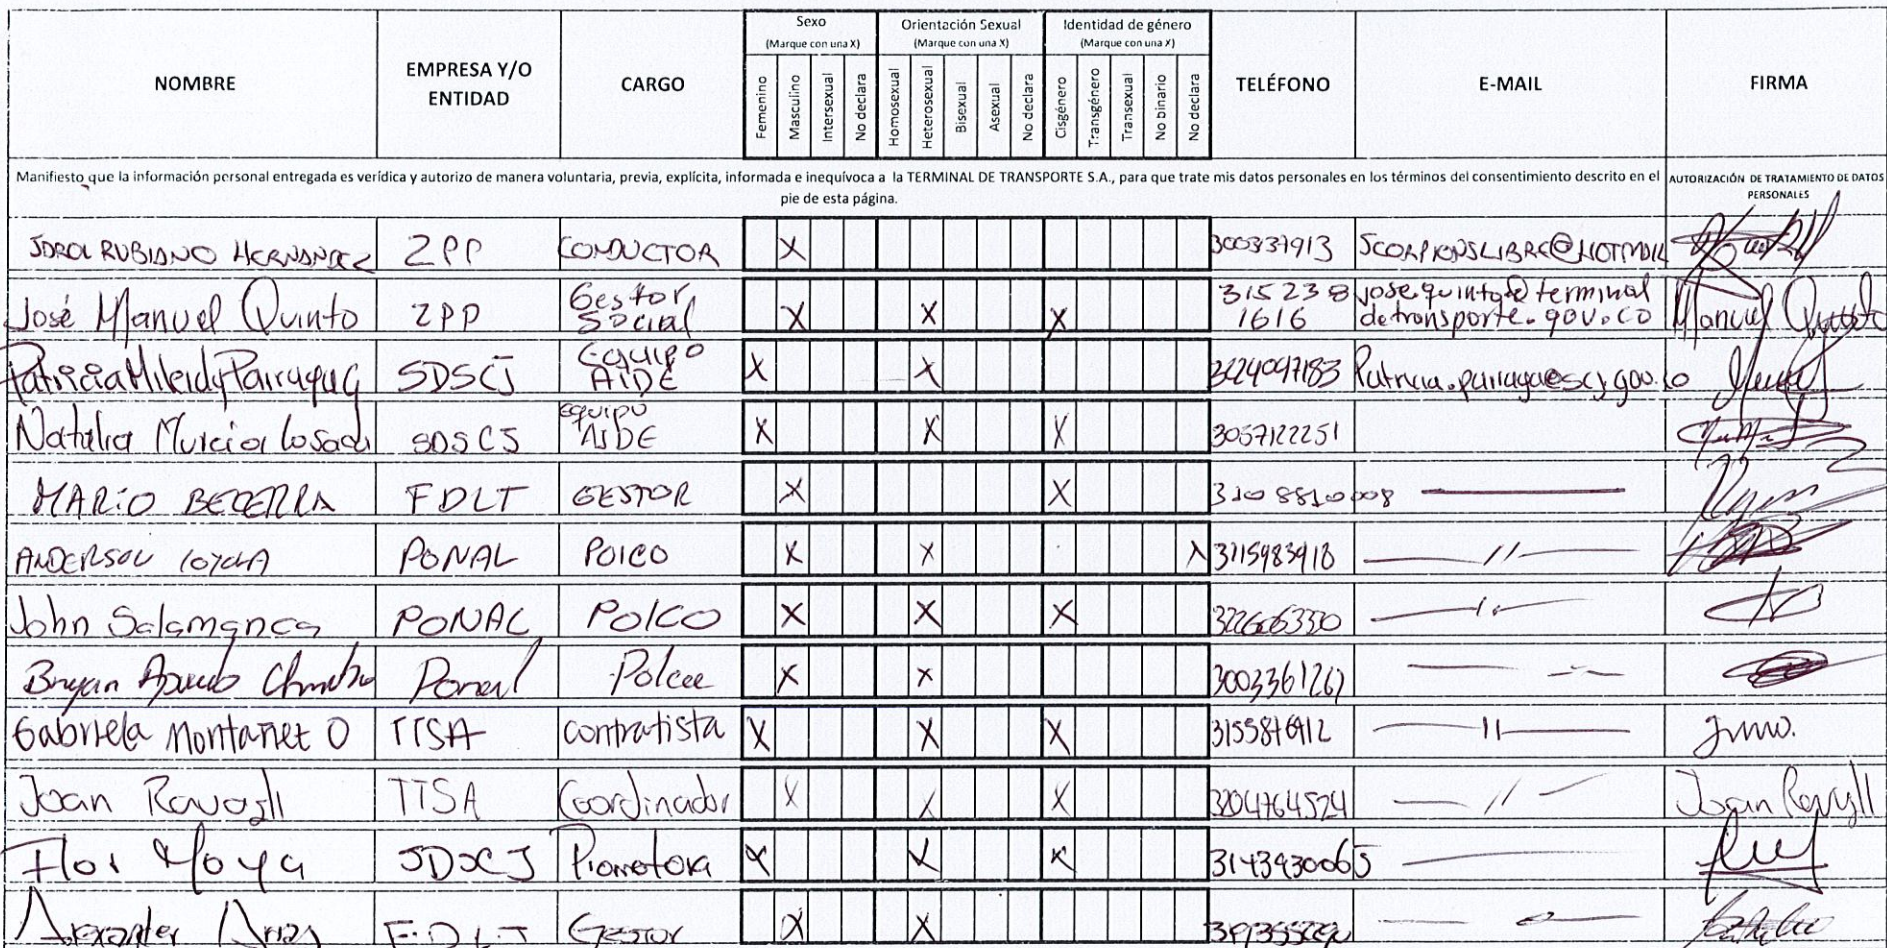 NOMBRE
EMPRESA Y/O ENTIDAD
CARGO
Sexo
(Marque con una X)
Femenino
Masculino
Intersexual
No declara
Orientación Sexual
(Marque con una X)
Homosexual
Heterosexual
Bisexual
Asexual
No declara
Identidad de género
(Marque con una X)
Cisgénero
Transgénero
Transexual
No binario
No declara
TELÉFONO
E-MAIL
FIRMA
Manifiesto que la información personal entregada es verídica y autorizo de manera voluntaria, previa, explícita, informada e inequívoca a la TERMINAL DE TRANSPORTE S.A., para que trate mis datos personales en los términos del consentimiento descrito en el
pie de esta página.
AUTORIZACIÓN DE TRATAMIENTO DE DATOS
PERSONALES
RUBIANO HERNANDEZ ZPP CONDUCTOR X 300337913 SCORPIONSLIBRE@HOTMAIL
José Manuel Quinto ZPP Gestor Social X X X 315 238 1616 jose.quinto@terminal detransporte.gov.co Manuel Quinto
Patricia SDSCJ Equipo AIDE X X
Natalia Murcia Losada SDSCJ equipo AIDE X X X 3057122251
MARIO BECERRA FDLT GESTOR X X 3108810008
ANDERSON PONAL POLCO X X X 3115983918
John Salamanca PONAL POLCO X X X
Bryan Ponal X X 3003361267
Gabriela Montañez O TTSA Contratista X X X
Joan TTSA Coordinador X X X 3204764524 Joan
Flor Moya SDSCJ Promotora X X X 3143430065
Alexander Arias F.D.L.T Gestor X X